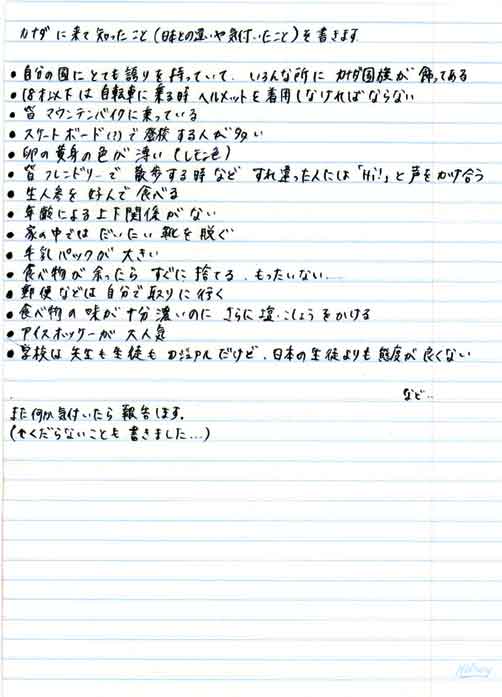 カナダに来て知ったこと(日本との違いや気付いたこと)を書きます.
• 自分の国にとても誇りを持っていて、いろんな所にカナダ国旗が飾ってある
• 18才以下は自転車に乗る時ヘルメットを着用しなければならない
• 皆マウンテンバイクに乗っている
• スケートボード(?)で登校する人が多い
• 卵の黄身の色が薄い(レモン色)
• 皆フレンドリーで散歩する時など すれ違った人には「Hi!」と声をかけ合う
• 生人参を好んで食べる
• 年齢による上下関係がない
• 家の中では だいたい靴を脱ぐ
• 牛乳パックが大きい
• 食べ物が余ったら すぐに捨てる.もったいない...
• 郵便などは自分で取りに行く
• 食べ物の味が十分濃いのに さらに塩・こしょうをかける
• アイスホッケーが大人気
• 学校は先生も生徒もカジュアルだけど、日本の生徒よりも態度が良くない
など..
また何か気付いたら報告します.
(くだらないことも書きました...)